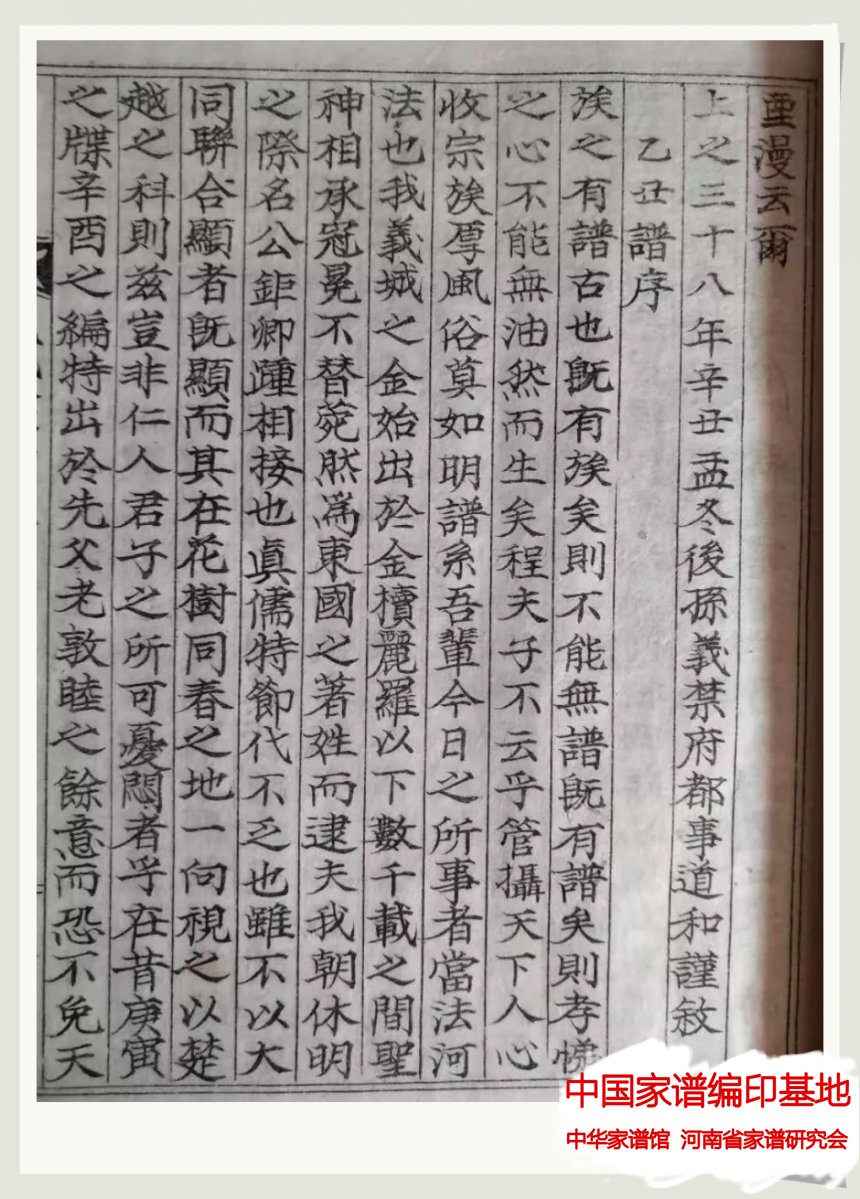 重漫云爾
上之三十八年辛丑孟冬後孫義禁府都事道和謹敘
乙丑譜序
族之有譜古也既有族矣則不能無譜既有譜矣則孝悌
之心不能無油然而生矣程夫子不云乎管攝天下人心
收宗族厚風俗莫如明譜系吾輩今日之所事者當法河
法也我義城之金始出於金櫝麗羅以下數千載之間聖
神相承冠冕不替菀然爲東國之著姓而逮夫我朝休明
之際名公鉅卿踵相接也眞儒特節代不乏也雖不以大
同聯合顯者既顯而其在花樹同春之地一向視之以楚
越之科則兹豈非仁人君子之所可憂悶者乎在昔庚寅
之牒辛酉之編特出於先父老敦睦之餘意而恐不免天
中国家谱编印基地
中华家谱馆 河南省家谱研究会